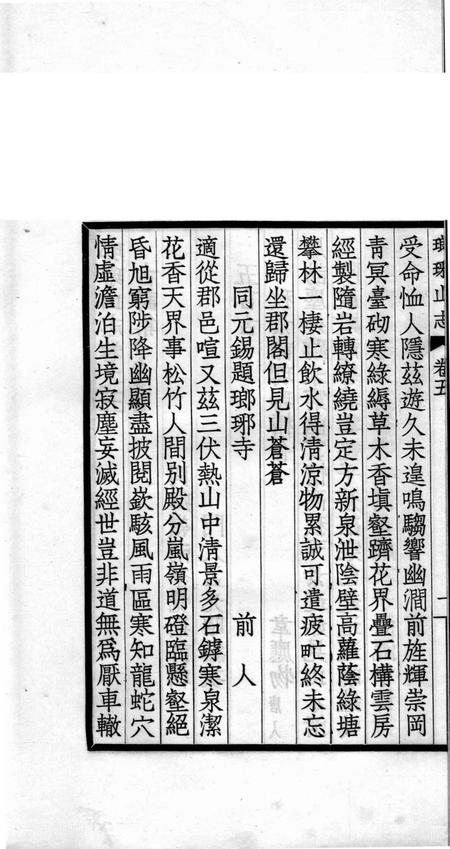 瑯琊山志 卷五 二
受命恤人隱茲遊久未遑鳴騶響幽澗前旌輝崇岡
青冥臺砌寒綠縟草木香塡壑躋花界疊石構雲房
經製隨岩轉繚繞豈定方新泉泄陰壁高蘿蔭綠塘
攀林一棲止飮水得淸涼物累誠可遣疲甿終未忘
還歸坐郡閣但見山蒼蒼
同元錫題瑯琊寺 前人
適從郡邑喧又茲三伏熱山中淸景多石罅寒泉潔
花香天界事松竹人間別殿分嵐嶺明磴臨懸壑絕
昏旭窮陟降幽顯盡披閱嶔駭風雨區寒知龍蛇穴
情虛澹泊生境寂塵妄滅經世豈非道無爲厭車轍